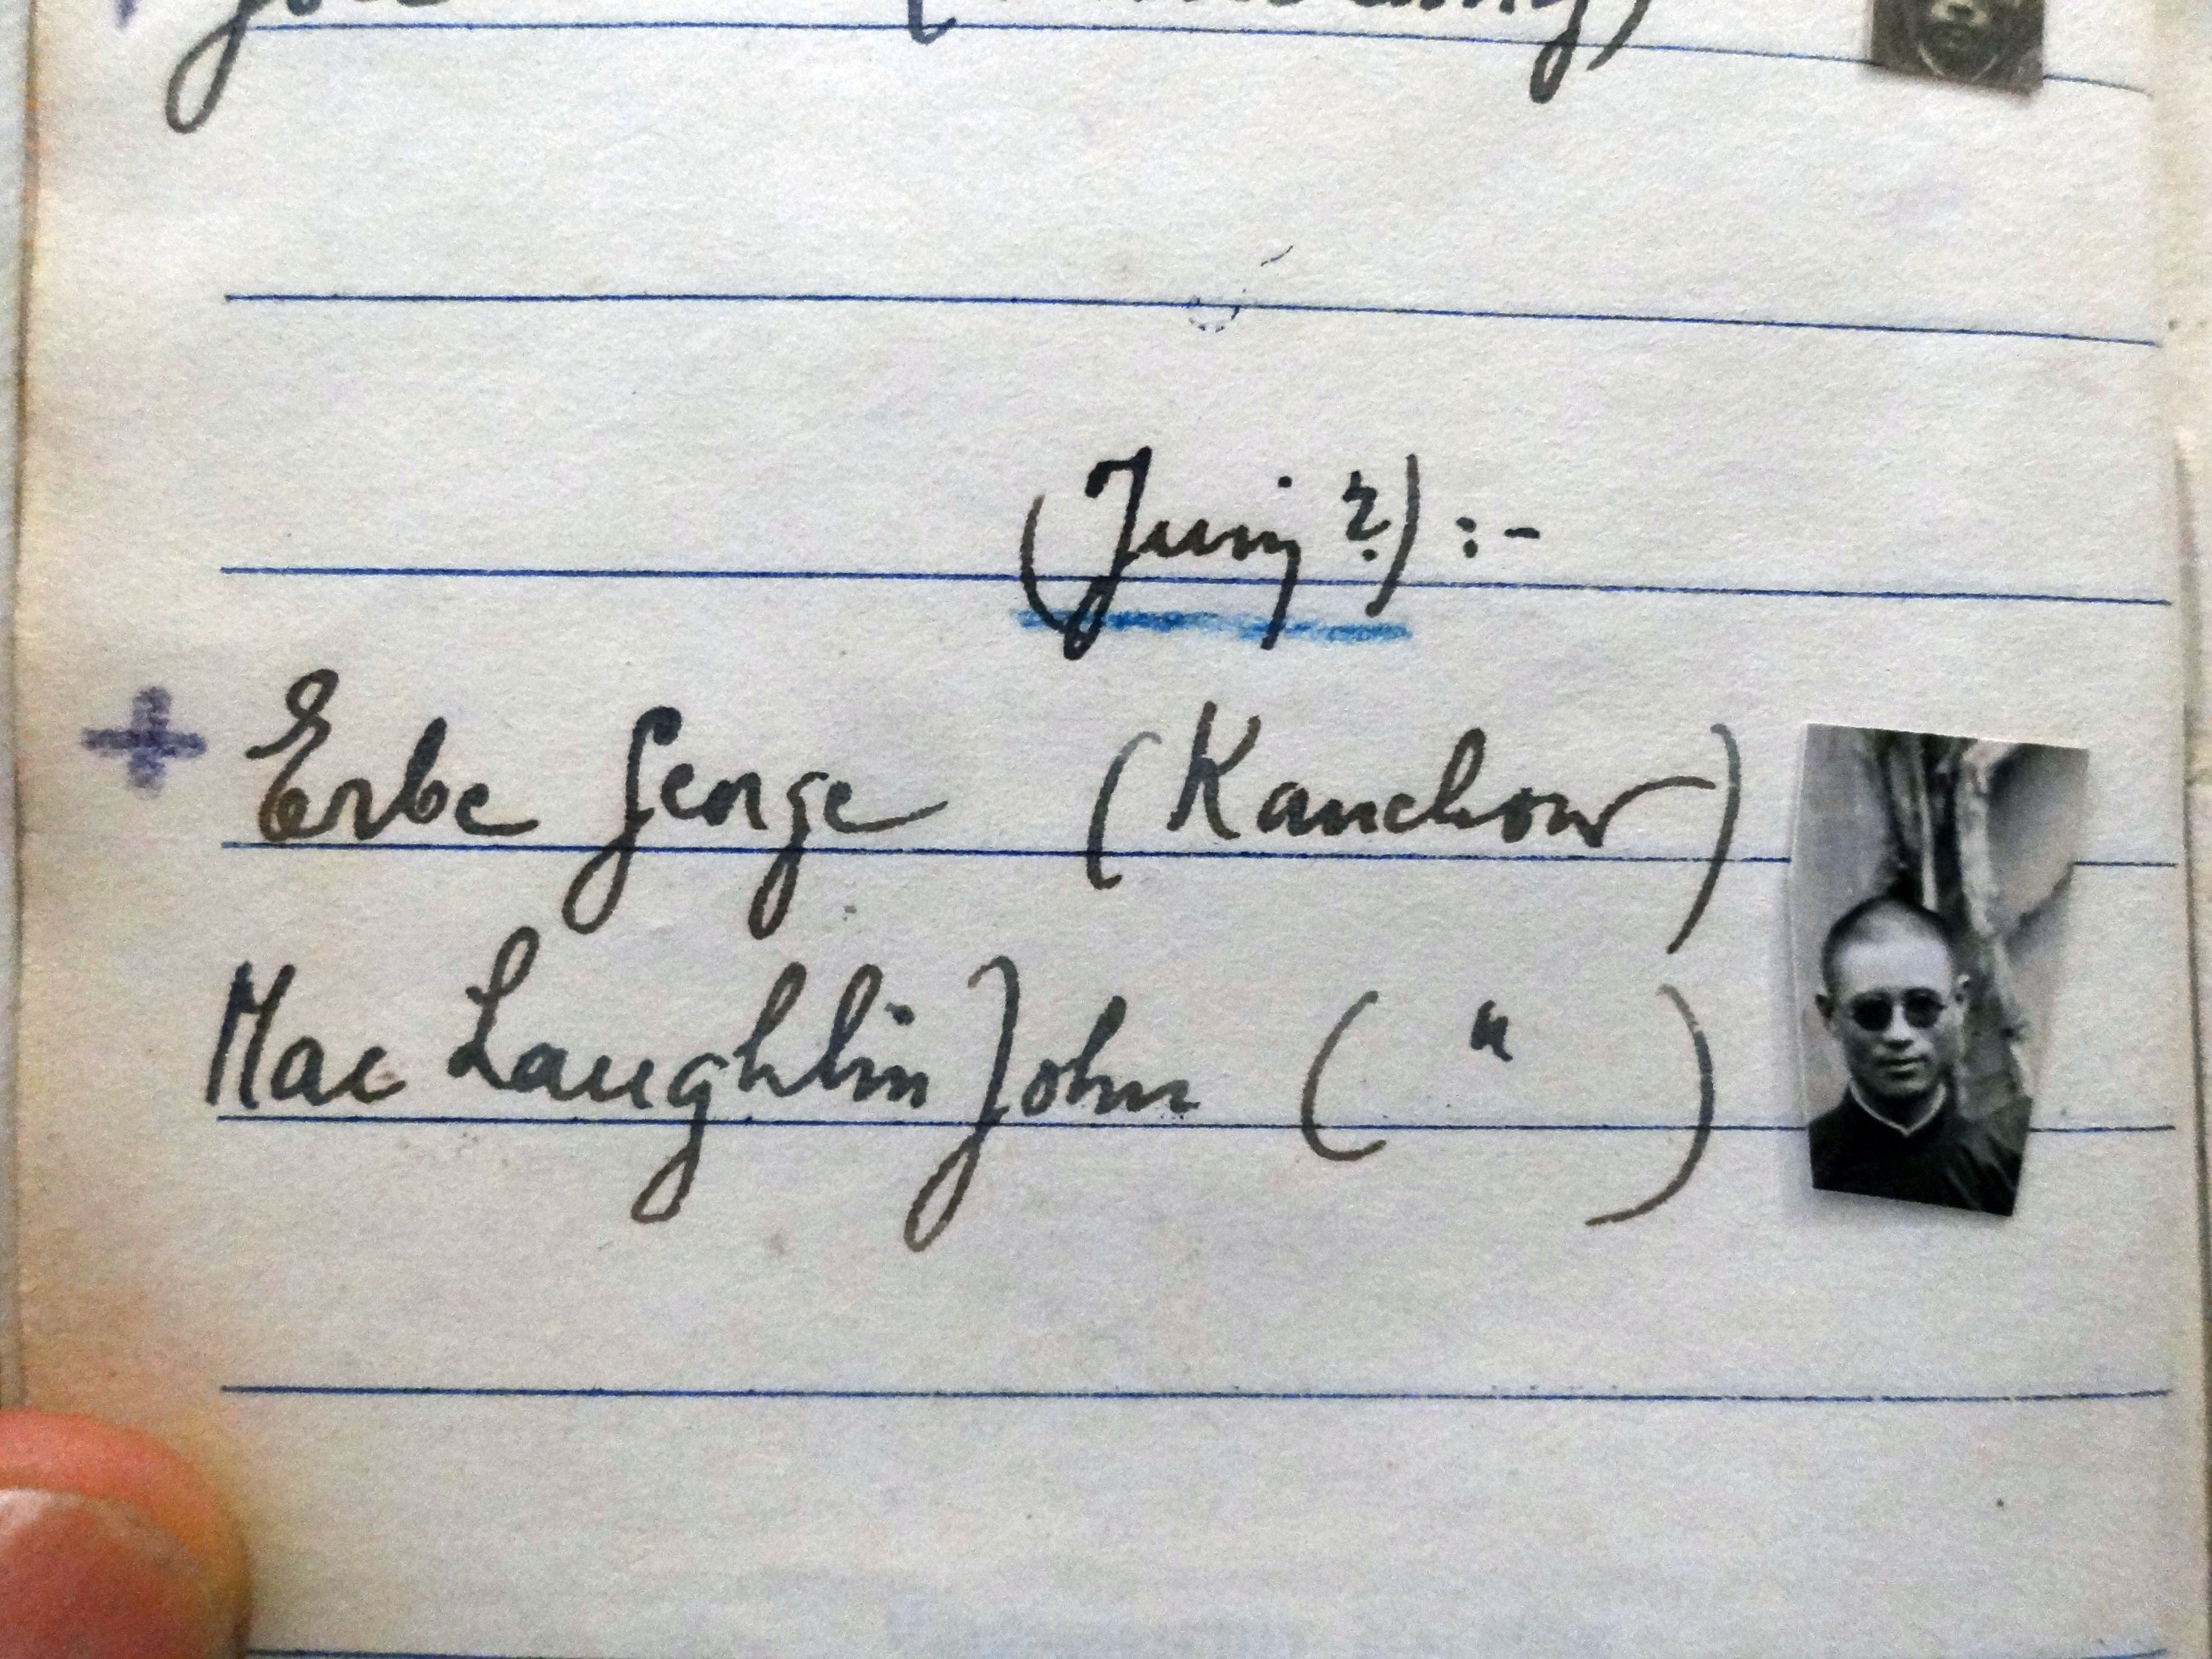 (Junij ?) :-
+ Erbe George (Kanchow)
Mac Laughlin John ( " )